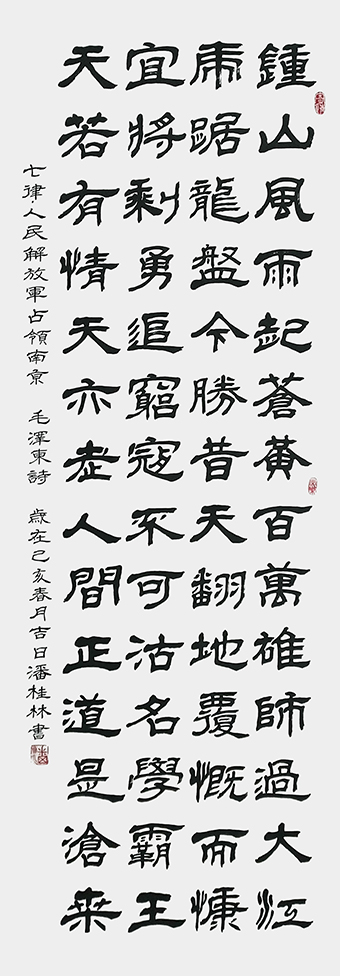 鍾山風雨起蒼黃百萬雄師過大江
虎踞龍盤今勝昔天翻地覆慨而慷
宜將剩勇追窮寇不可沽名學霸王
天若有情天亦老人間正道是滄桒
七律人民解放軍占領南京 毛澤東詩 歲在己亥春月吉日潘桂林書